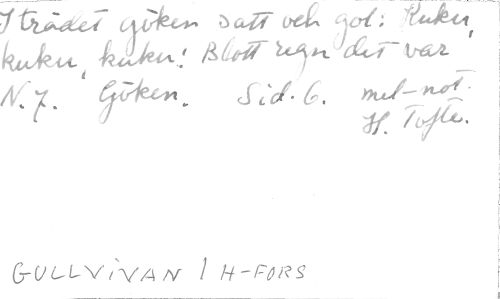 I trädet göken satt och gol: Kuku,
kuku, kuku! Blott regn det var
N. 7. Göken. Sid. 6. mel-not.
H. Tofte.
GULLVIVAN / H-FORS